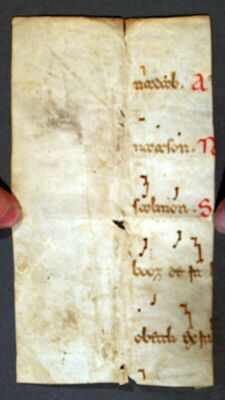 nadab. A
naason. N
salmon. S
booz de ra
obeth ex ru